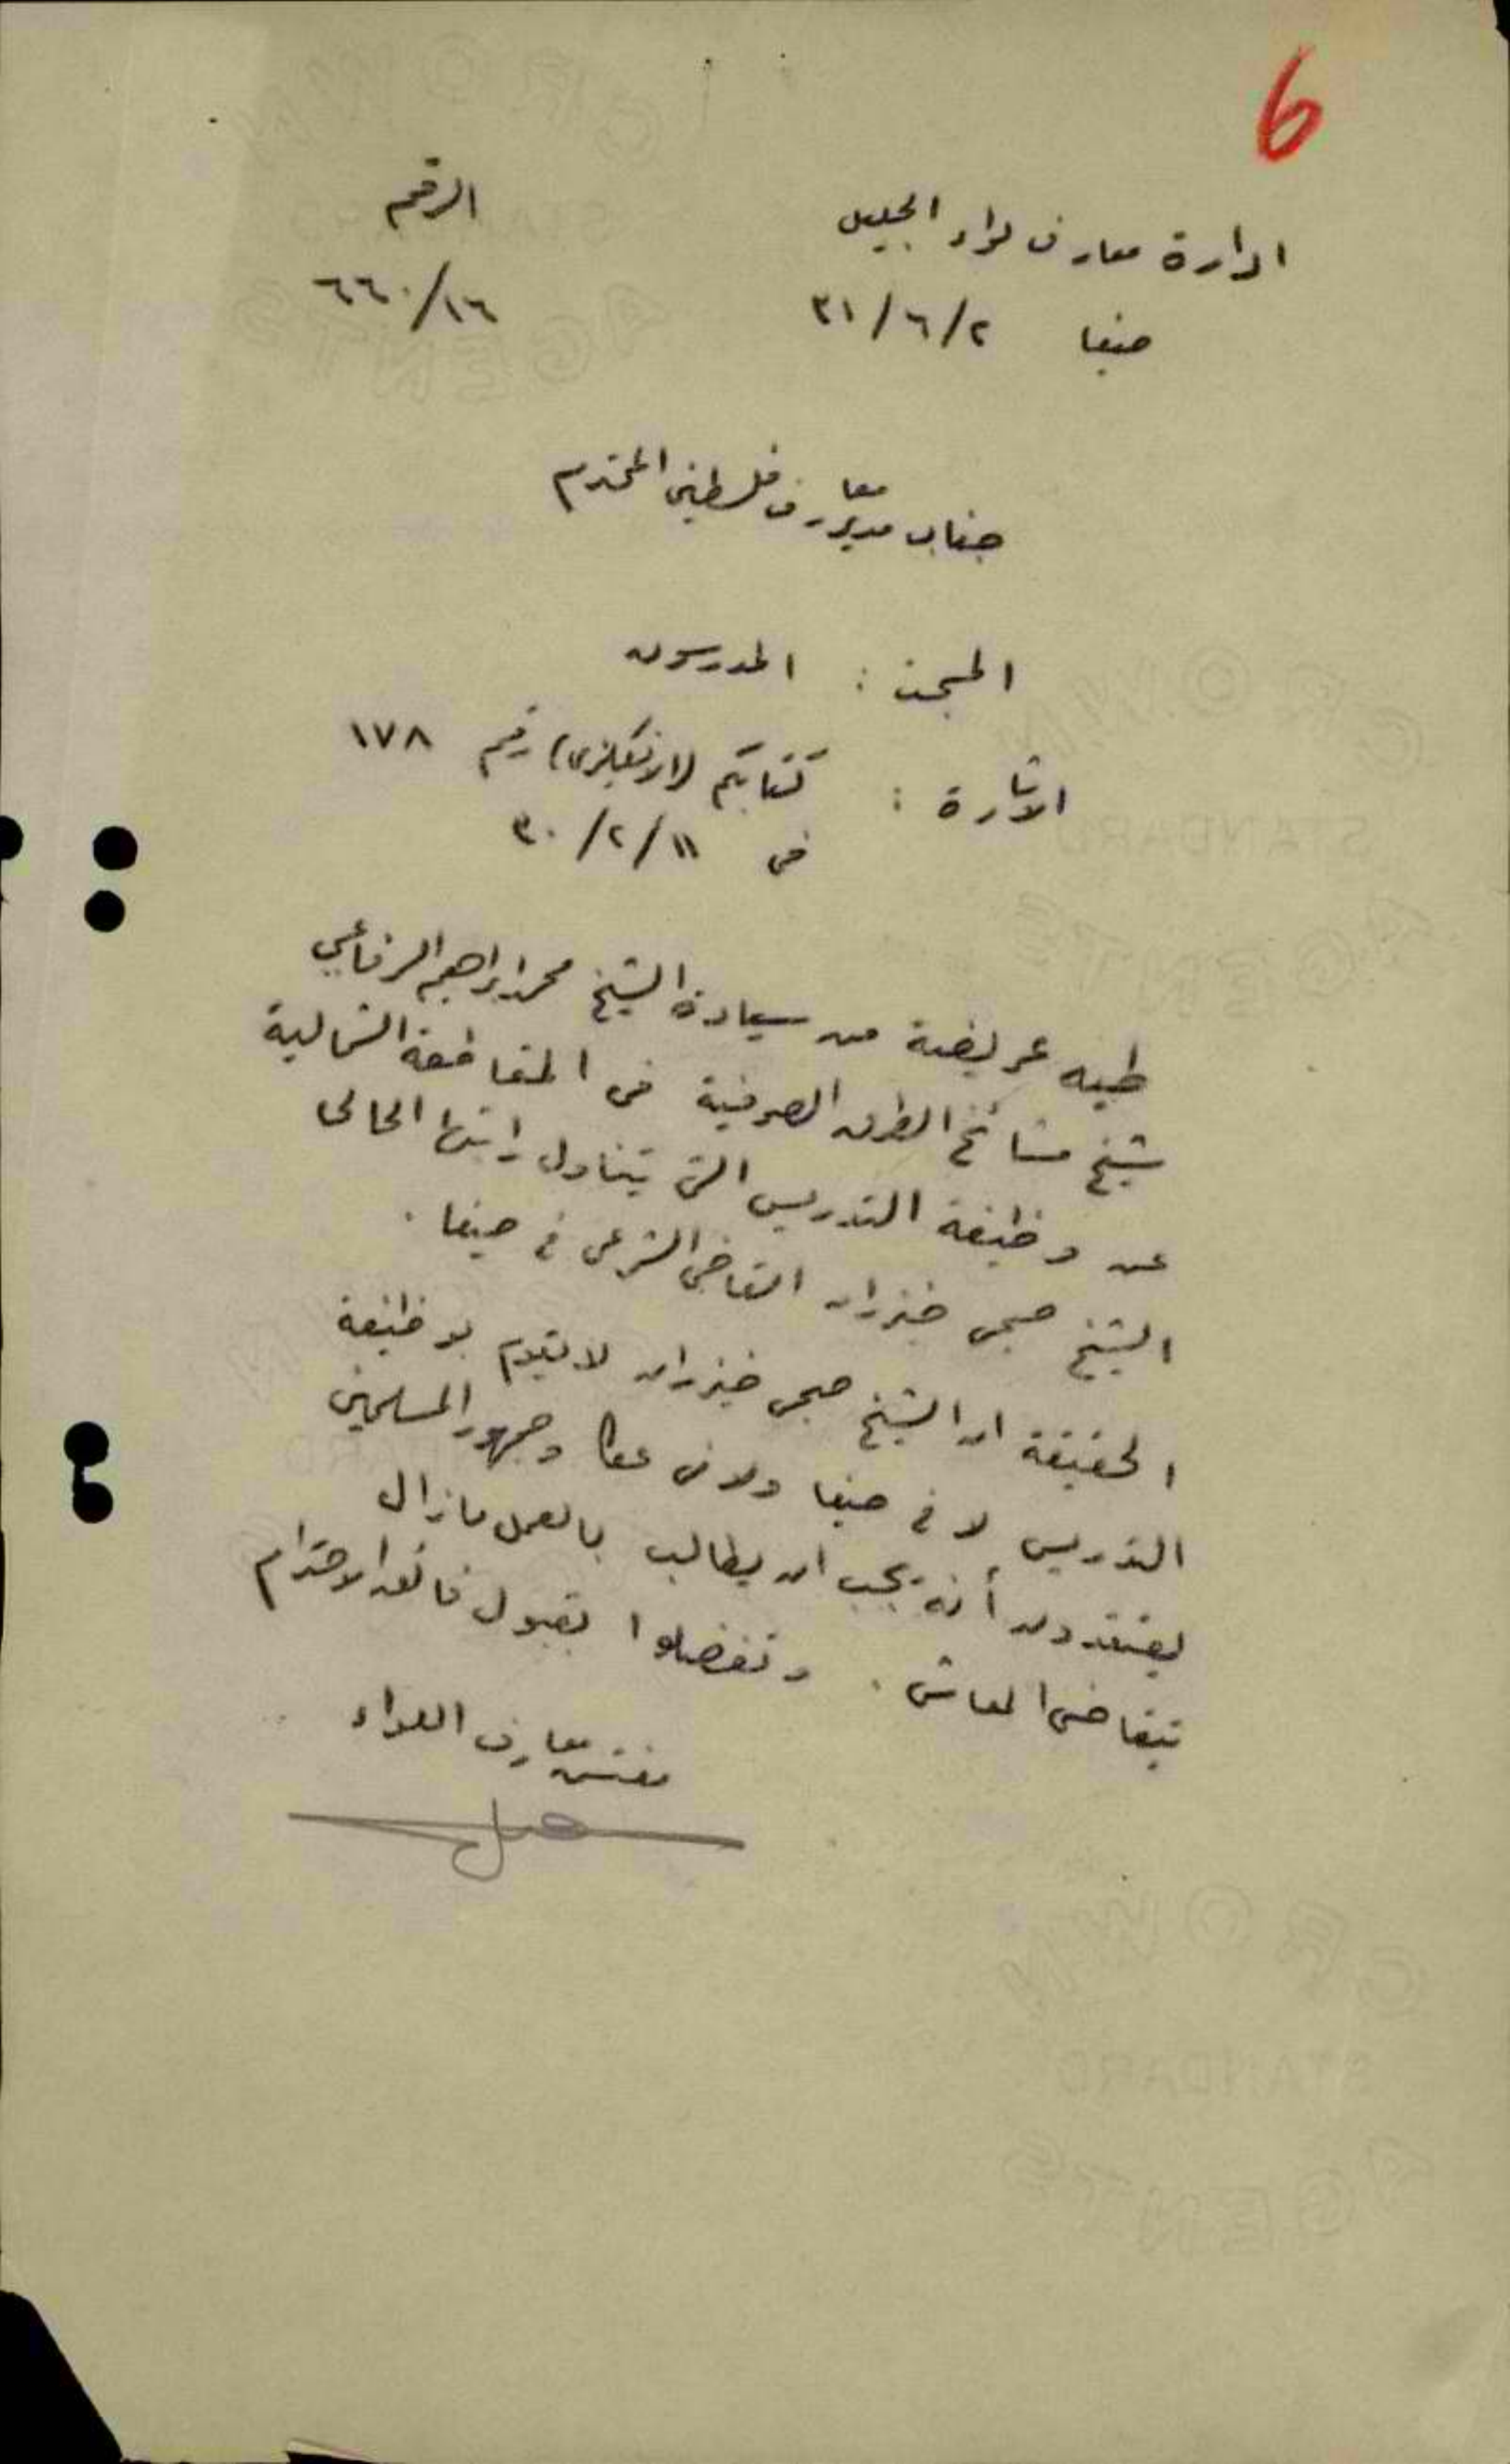 6
ادارة معارف لواء الجليل
الرقم
حيفا ٣١/٦/٢
٦٦٠/١٦
جناب مدير معارف فلسطين المحترم
المبحث : المدرسون
الاشارة : كتابكم (الانكليزي) رقم ١٧٨
في ٣٠/٢/١١
طيه عريضة من سيادة الشيخ محمد ابراهيم الرفاعي
شيخ مشائخ الطرق الصوفية في المقاطعة الشمالية
عن وظيفة التدريس التي يتناول راتبها الحالي
الشيخ صبحي خيزران القاضي الشرعي في حيفا .
الحقيقة ان الشيخ صبحي خيزران لا يقوم بوظيفة
التدريس لا في حيفا ولا في عكا وجمهور المسلمين
يعتقدون أنه يجب ان يطالب بالعمل ما زال
يتقاضى المعاش . وتفضلوا بقبول فائق الاحترام
مفتش معارف اللواء
CROWN
STANDARD
AGENTS
CROWN
STANDARD
AGENTS
CROWN
STANDARD
AGENTS